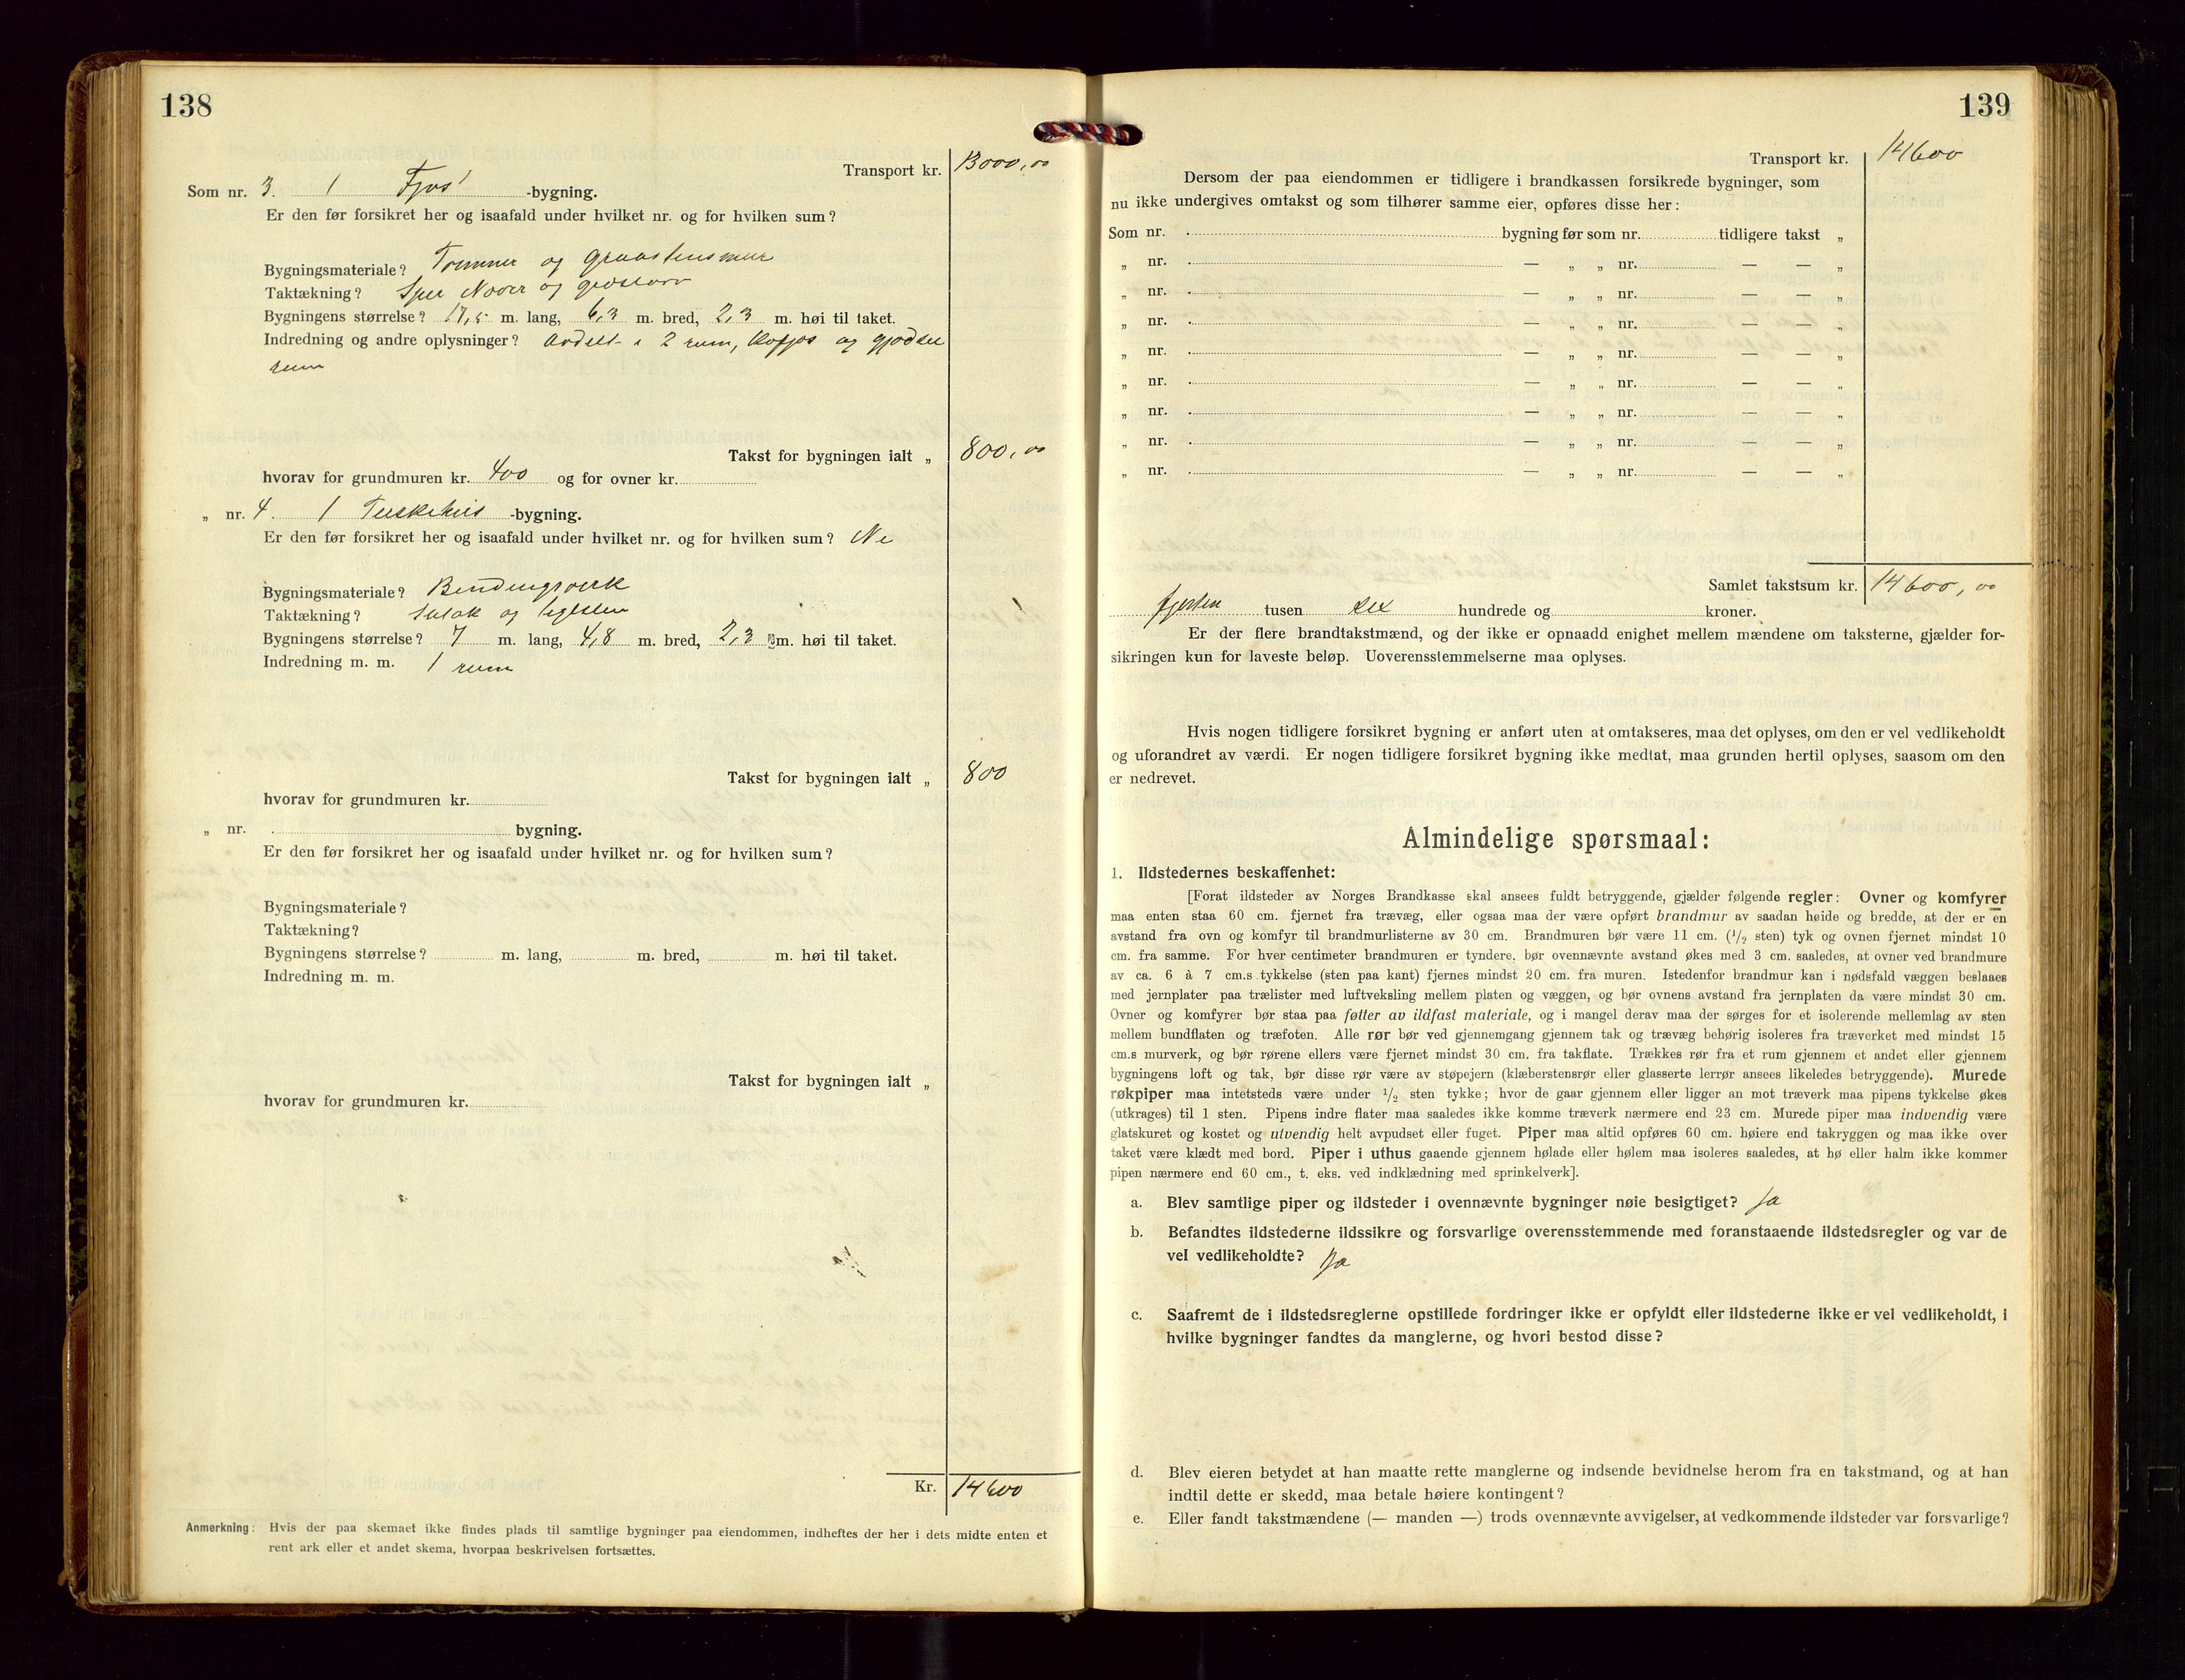 138
Transport kr. 13000,00
Som nr. 3. 1 Fjøs -bygning.
Er den før forsikret her og isaafald under hvilket nr. og for hvilken sum?
Bygningsmateriale? Tømmer og graastensmur
Taktækning? Sper Næver og græstorv
Bygningens størrelse? 17,5 m. lang, 6,3 m. bred, 2,3 m. høi til taket.
Indredning og andre oplysninger? avdelt i 2 rum, og gjødsel
rum
Takst for bygningen ialt „ 800,00
hvorav for grundmuren kr. 400 og for ovner kr.
„ nr. 4. 1 Tærskehus -bygning.
Er den før forsikret her og isaafald under hvilket nr. og for hvilken sum? Ne
Bygningsmateriale? Bindingsverk
Taktækning? Sutak og teglsten
Bygningens størrelse? 7 m. lang, 4,8 m. bred, 2,3 m. høi til taket.
Indredning m. m. 1 rum
Takst for bygningen ialt „ 800
hvorav for grundmuren kr.
„ nr. bygning.
Er den før forsikret her og isaafald under hvilket nr. og for hvilken sum?
Bygningsmateriale?
Taktækning?
Bygningens størrelse? m. lang, m. bred, m. høi til taket.
Indredning m. m.
Takst for bygningen ialt „
hvorav for grundmuren kr.
Kr. 14600
Anmerkning: Hvis der paa skemaet ikke findes plads til samtlige bygninger paa eiendommen, indheftes der her i dets midte enten et
rent ark eller et andet skema, hvorpaa beskrivelsen fortsættes.
139
Transport kr. 14600
Dersom der paa eiendommen er tidligere i brandkassen forsikrede bygninger, som
nu ikke undergives omtakst og som tilhører samme eier, opføres disse her:
Som nr. bygning før som nr. tidligere takst „
„ nr. — „ „ nr. — — „
„ nr. — „ „ nr. — — „
„ nr. — „ „ nr. — — „
„ nr. — „ „ nr. — — „
„ nr. — „ „ nr. — — „
„ nr. — „ „ nr. — — „
„ nr. — „ „ nr. — — „
„ nr. — „ „ nr. — — „
Samlet takstsum kr. 14600,00
fjorten tusen sex hundrede og kroner.
Er der flere brandtakstmænd, og der ikke er opnaadd enighet mellem mændene om taksterne, gjælder for-
sikringen kun for laveste beløp. Uoverensstemmelserne maa oplyses.
Hvis nogen tidligere forsikret bygning er anført uten at omtakseres, maa det oplyses, om den er vel vedlikeholdt
og uforandret av værdi. Er nogen tidligere forsikret bygning ikke medtat, maa grunden hertil oplyses, saasom om den
er nedrevet.
Almindelige spørsmaal:
1. Ildstedernes beskaffenhet:
[Forat ildsteder av Norges Brandkasse skal ansees fuldt betryggende, gjælder følgende regler: Ovner og komfyrer
maa enten staa 60 cm. fjernet fra trævæg, eller ogsaa maa der være opført brandmur av saadan høide og bredde, at der er en
avstand fra ovn og komfyr til brandmurlisterne av 30 cm. Brandmuren bør være 11 cm. (1/2 sten) tyk og ovnen fjernet mindst 10
cm. fra samme. For hver centimeter brandmuren er tyndere, bør ovennævnte avstand økes med 3 cm. saaledes, at ovner ved brandmure
av ca. 6 à 7 cm.s tykkelse (sten paa kant) fjernes mindst 20 cm. fra muren. Istedenfor brandmur kan i nødsfald væggen beslaaes
med jernplater paa trælister med luftveksling mellem platen og væggen, og bør ovnens avstand fra jernplaten da være mindst 30 cm.
Ovner og komfyrer bør staa paa føtter av ildfast materiale, og i mangel derav maa der sørges for et isolerende mellemlag av sten
mellem bundflaten og træfoten. Alle rør bør ved gjennemgang gjennem tak og trævæg behørig isoleres fra træverket med mindst 15
cm.s murverk, og bør rørene ellers være fjernet mindst 30 cm. fra takflate. Trækkes rør fra et rum gjennem et andet eller gjennem
bygningens loft og tak, bør disse rør være av støpejern (klæberstensrør eller glasserte lerrør ansees likeledes betryggende). Murede
røkpiper maa intetsteds være under 1/2 sten tykke; hvor de gaar gjennem eller ligger an mot træverk maa pipens tykkelse økes
(utkrages) til 1 sten. Pipens indre flater maa saaledes ikke komme træverk nærmere end 23 cm. Murede piper maa indvendig være
glatskuret og kostet og utvendig helt avpudset eller fuget. Piper maa altid opføres 60 cm. høiere end takryggen og maa ikke over
taket være klædt med bord. Piper i uthus gaaende gjennem hølade eller hølem maa isoleres saaledes, at hø eller halm ikke kommer
pipen nærmere end 60 cm., t. eks. ved indklædning med sprinkelverk].
a. Blev samtlige piper og ildsteder i ovennævnte bygninger nøie besigtiget? Ja
b. Befandtes ildstederne ildssikre og forsvarlige overensstemmende med foranstaaende ildstedsregler og var de
vel vedlikeholdte? Ja
c. Saafremt de i ildstedsreglerne opstillede fordringer ikke er opfyldt eller ildstederne ikke er vel vedlikeholdt, i
hvilke bygninger fandtes da manglerne, og hvori bestod disse?
d. Blev eieren betydet at han maatte rette manglerne og indsende bevidnelse herom fra en takstmand, og at han
indtil dette er skedd, maa betale høiere kontingent?
e. Eller fandt takstmændene (— manden —) trods ovennævnte avvigelser, at vedkommende ildsteder var forsvarlige?